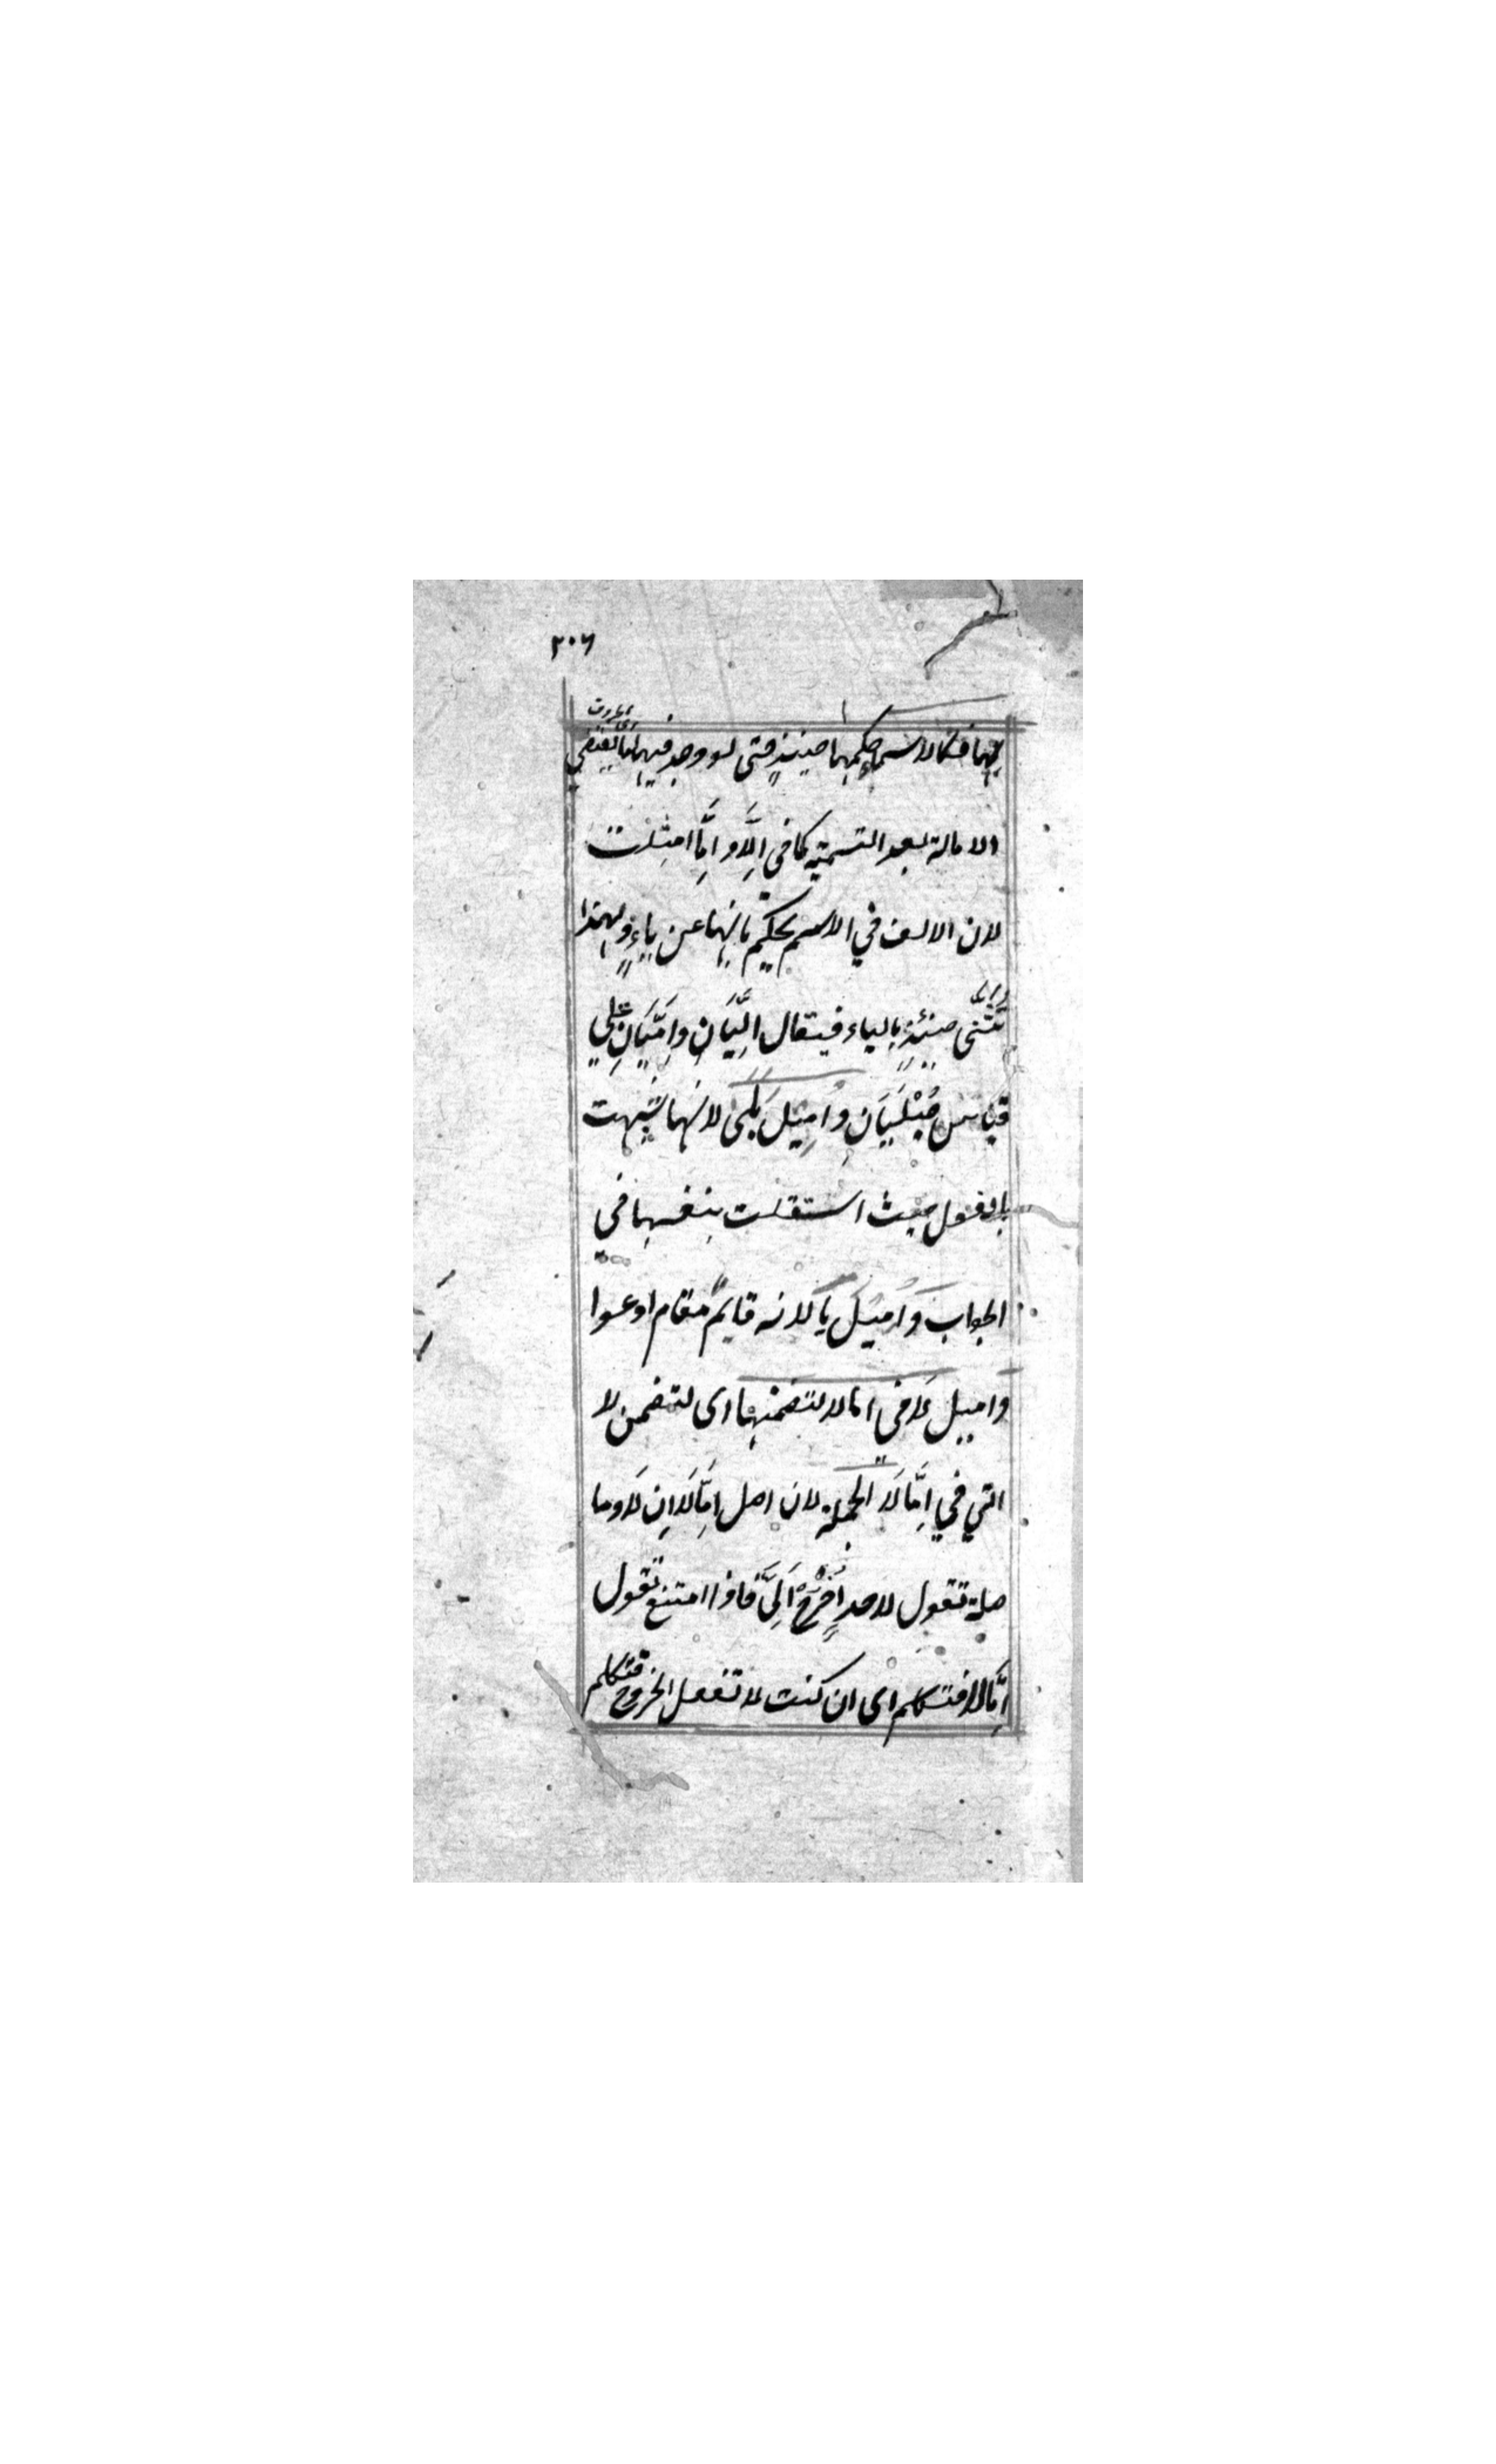 ٢٠٦
بهما فكالاسماء حكمهما حينئذٍ حتى لو وجد فيهما ما يقتضي
الامالة بعد التسمية كما في اِلَّا و اِمَّا امثلت
لان الالف في الاسم يحكم بانها عن ياءٍ ولهذا
تثنّى حينئذٍ بالياء فيقال اِلَّيَانِ و اِمَّيَانِ علي
قياس حُبْلَيَانِ و اُمِيْلَ بَلَى لانها شبهت
بالفعل حيث استقلت بنفسها في
الجواب وَاُمِيْلَ يَا لانه قايمٌ مقام ادعوا
واميل لَا في امالا لتضمنها اى لتضمن لا
التي في اِمَّالَا الجملة لان اصل اِمَّالَا اِن لَا وما
صلة تقول لاحد اُخْرُجْ اِلَىَّ فاذا امتنع تقول
اِمَّالا فتكلم اى ان كنت لا تفعل الخروج فتكلم